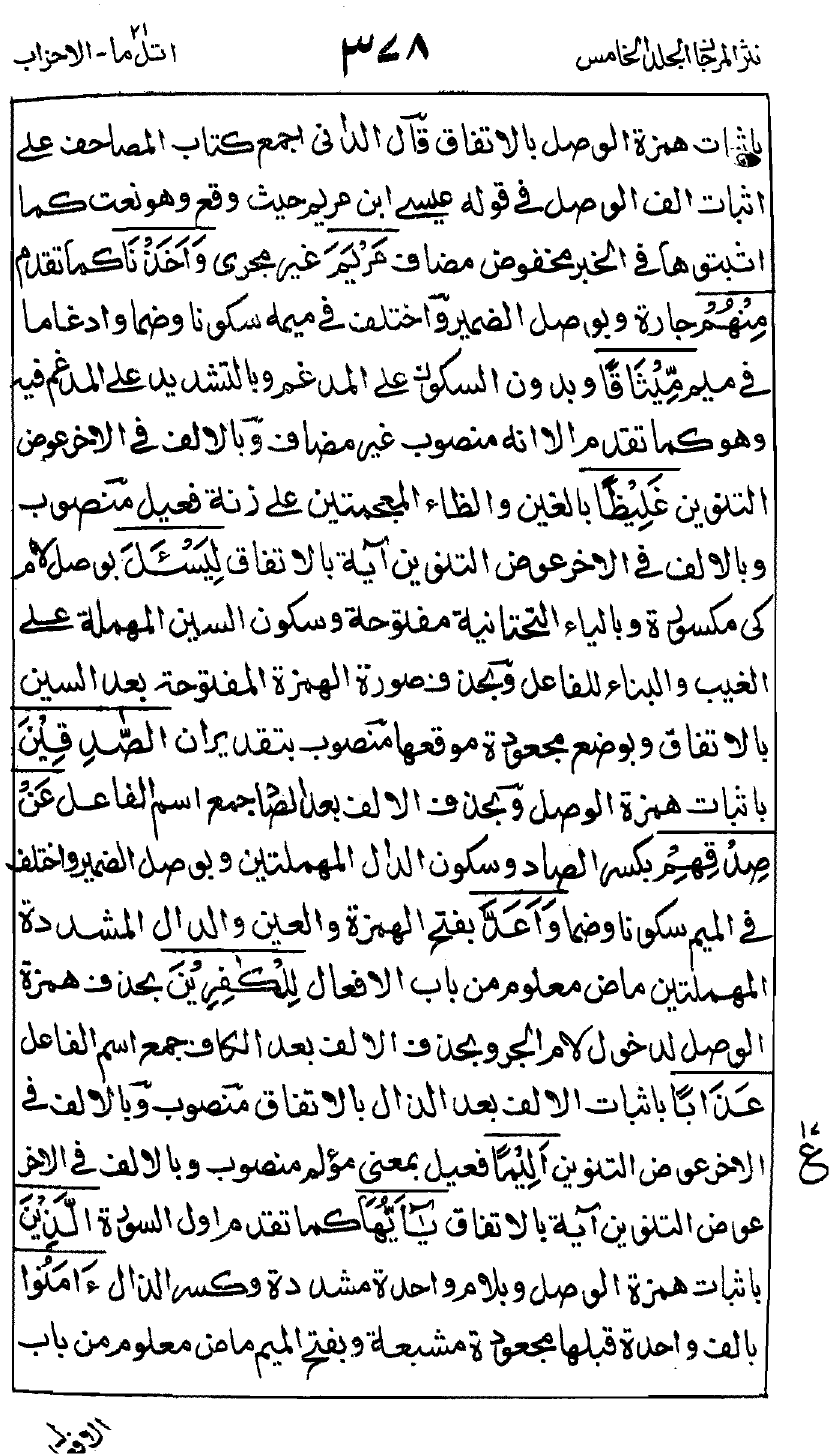 نثر المرجان المجلد الخامس ٣٧٨ اتل ما ٢١ - الاحزاب
باثبات همزة الوصل بالاتفاق قال الدانى اجمع كتاب المصاحف على
اثبات الف الوصل فى قوله عيسى ابن مريم حيث وقع وهو نعت كما
اثبتوها فى الخبر مخفوض مضاف مَرْيَمَ غير مجرى وَاَخَذْنَا كما تقدم
مِنْهُمْ جارة وبوصل الضمير واختلف فى ميمه سكونا وضما وادغاما
فى ميم مِّيْثَاقًا وبدون السكون على المدغم وبالتشديد على المدغم فيه
وهو كما تقدم الا انه منصوب غير مضاف وبالالف فى الاخر عوض
التنوين غَلِيْظًا بالغين والظاء المعجمتين على زنة فعيل منصوب
وبالالف فى الاخر عوض التنوين آية بالاتفاق لِيَسْـَٔلَ بوصل لام
كى مكسورة وبالياء التحتانية مفتوحة وسكون السين المهملة على
الغيب والبناء للفاعل وبحذف صورة الهمزة المفتوحة بعد السين
بالاتفاق وبوضع مجعودة موقعها منصوب بتقدير ان الصّٰدِقِيْنَ
باثبات همزة الوصل وبحذف الالف بعد الصاد جمع اسم الفاعل عَنْ
صِدْقِهِمْ بكسر الصاد وسكون الدال المهملتين وبوصل الضمير واختلف
فى الميم سكونا وضما وَاَعَدَّ بفتح الهمزة والعين والدال المشددة
المهملتين ماض معلوم من باب الافعال لِلْكٰفِرِيْنَ بحذف همزة
الوصل لدخول لام الجر وبحذف الالف بعد الكاف جمع اسم الفاعل
عَذَابًا باثبات الالف بعد الذال بالاتفاق منصوب وبالالف فى
الاخر عوض التنوين اَلِيْمًا فعيل بمعنى مؤلم منصوب وبالالف فى الاخر
عوض التنوين آية بالاتفاق يٰٓاَيُّهَا كما تقدم اول السورة الَّذِيْنَ
باثبات همزة الوصل وبلام واحدة مشددة وكسر الذال ءَامَنُوا
بالف واحدة قبلها مجعودة مشبعة وبفتح الميم ماض معلوم من باب
ع